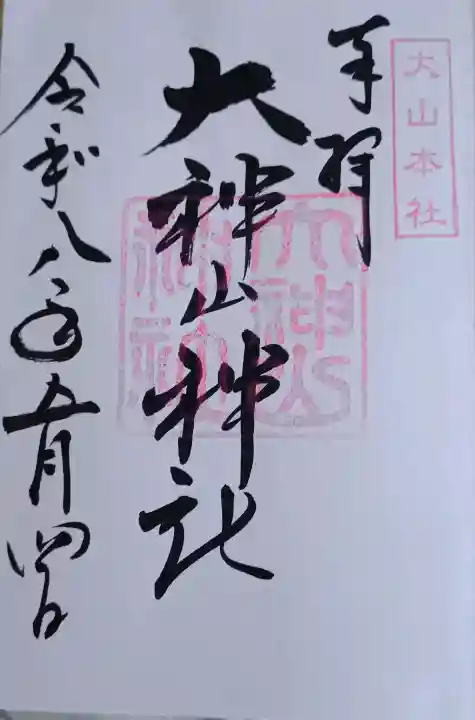 大山本社
奉拝
大神山神社
大神山神社
令和八年五月四日